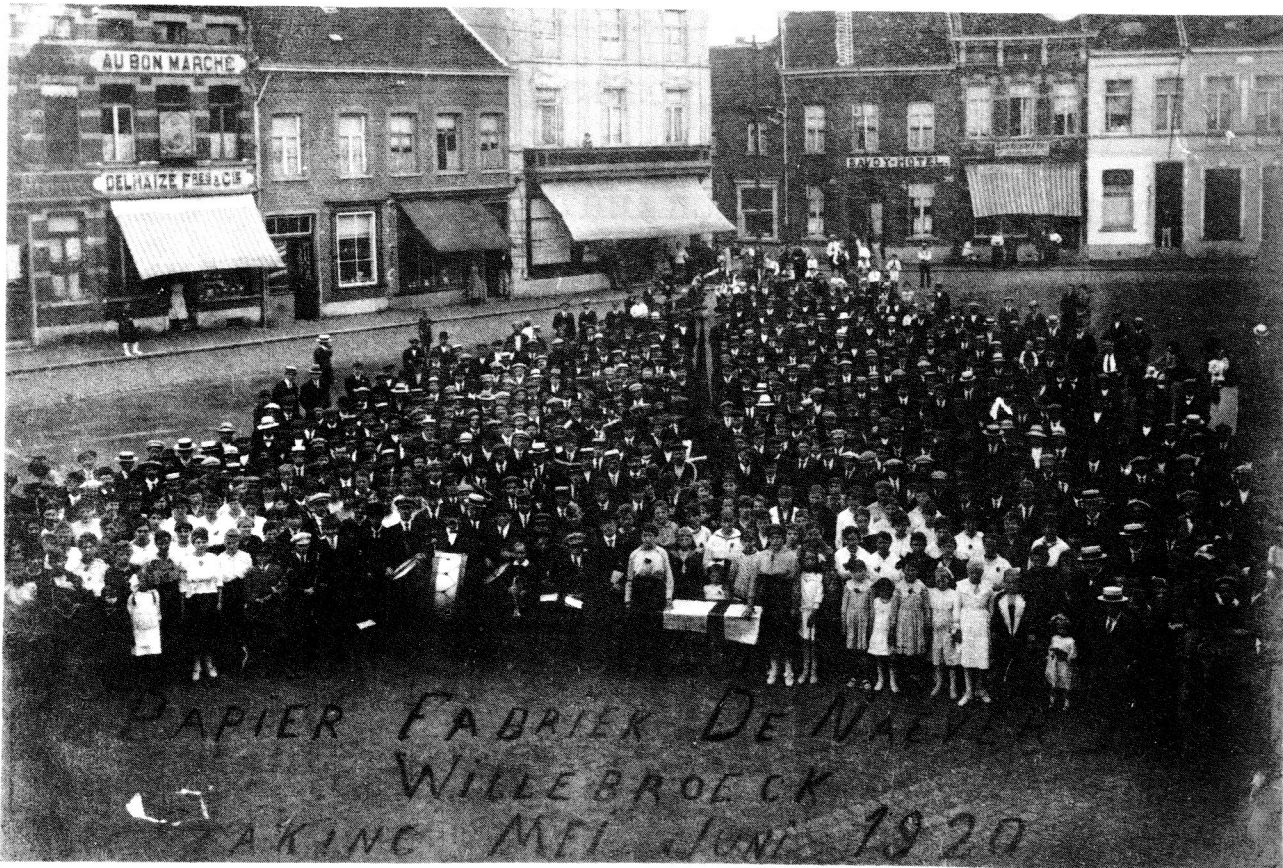 AU BON MARCHÉ
DELHAIZE FRES & CIE
SAVOY-HOTEL.
PAPIER FABRIEK DE NAEYER
WILLEBROECK
STAKING MEI JUNI 1920